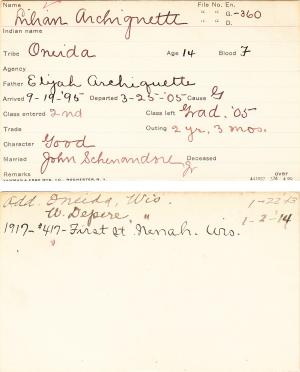 Name Lilian Archiquette File No. En.
" " G. -360
Indian name " " D.
Tribe Oneida Age 14 Blood F
Agency
Father Elijah Archiquette
Arrived 9-19-'95 Departed 3-25-'05 Cause G
Class entered 2nd Class left Grad. '05
Trade Outing 2 yr, 3 mos.
Character Good
Married John Schenandore Jr Deceased
Remarks OVER
Add. Oneida, Wis. 1-22-13
W. Depere, " 1-2-14
1917- #417- First St Nenah. Wis.